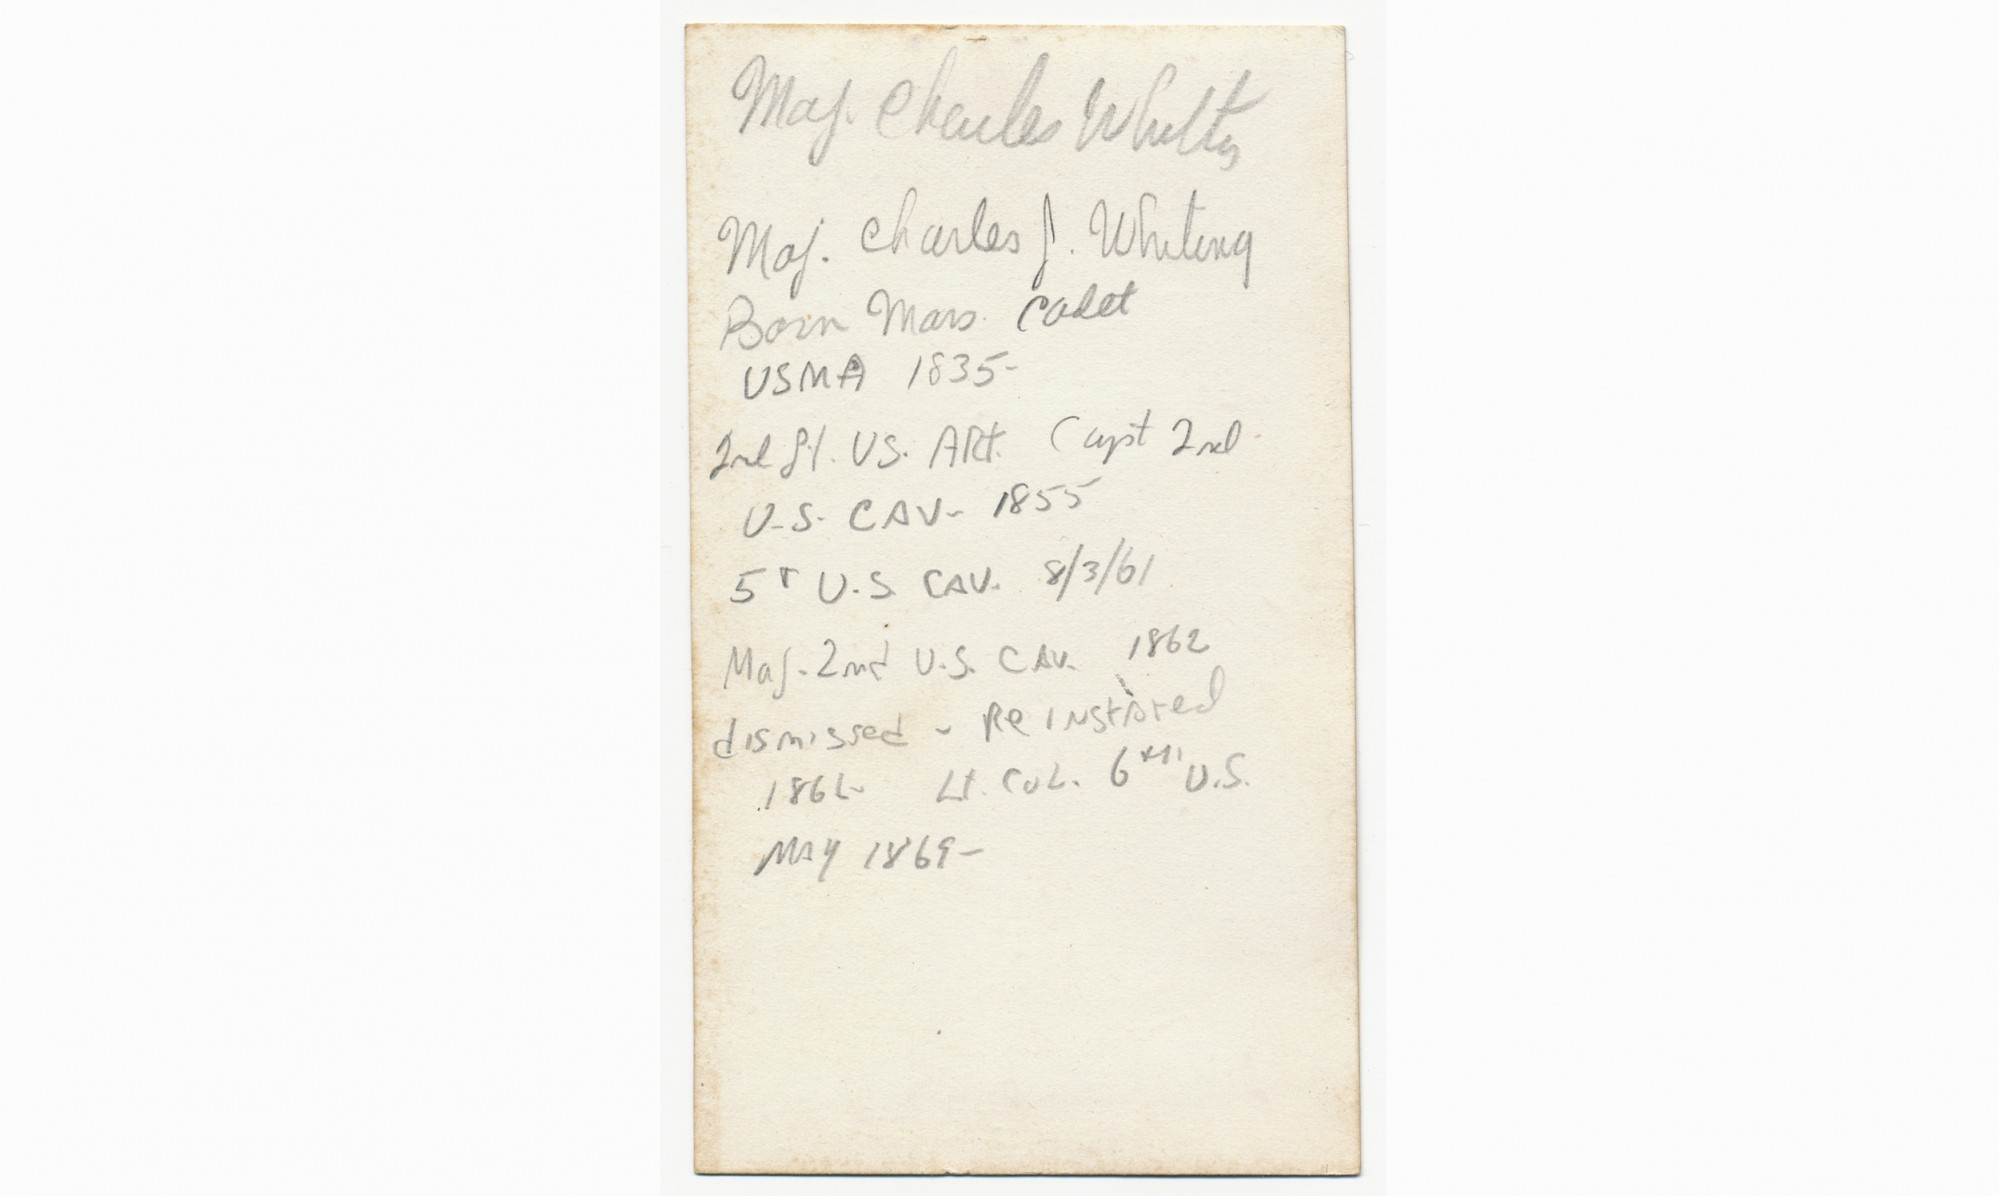 Maj. Charles
Maj. Charles J. Whiting
Born Mass. Cadet
USMA 1835-
2nd Lt. US. ARt. Capt 2nd
U.S. CAV- 1855
5th U.S CAV. 8/3/61
Maj. 2nd U.S. CAV. 1862
dismissed - Re instated
Lt. COL. 6th U.S.
MAY 1869-